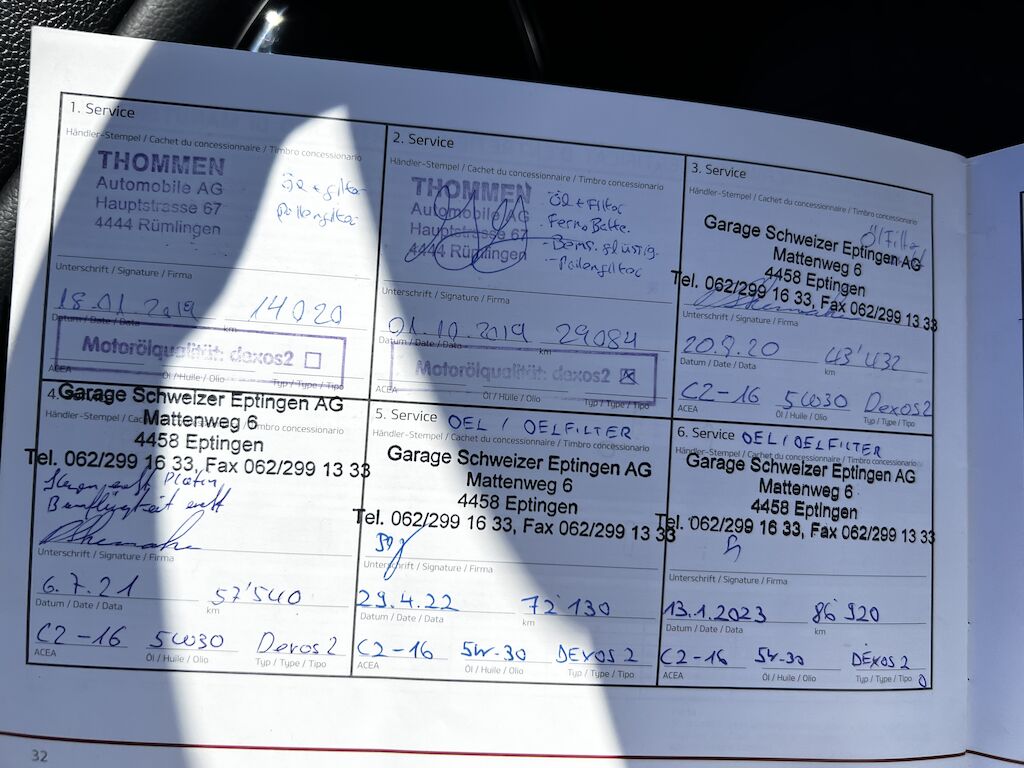 1. Service
Händler-Stempel / Cachet du concessionnaire / Timbro concessionario
THOMMEN
Automobile AG
Hauptstrasse 67
4444 Rümlingen
Öl + filter
Pollenfilter
Unterschrift / Signature / Firma
18.01.2019 14020
Datum / Date / Data km
Motorölqualität: dexos2
ACEA Öl / Huile / Olio Typ / Type / Tipo
2. Service
Händler-Stempel / Cachet du concessionnaire / Timbro concessionario
THOMMEN
Automobile AG
Hauptstrasse 67
4444 Rümlingen
Öl + Filter
- Pollenfilter
Unterschrift / Signature / Firma
01.10.2019 29084
Datum / Date / Data km
Motorölqualität: dexos2
ACEA Öl / Huile / Olio Typ / Type / Tipo
3. Service
Händler-Stempel / Cachet du concessionnaire / Timbro concessionario
Öl Filter
Garage Schweizer Eptingen AG
Mattenweg 6
4458 Eptingen
Tel. 062/299 16 33, Fax 062/299 13 33
Unterschrift / Signature / Firma
20.8.20 43'432
Datum / Date / Data km
C2-16 5W30 Dexos2
ACEA Öl / Huile / Olio Typ / Type / Tipo
4.
Garage Schweizer Eptingen AG
Händler-Stempel / Cachet du concessionnaire / Timbro concessionario
Mattenweg 6
4458 Eptingen
Tel. 062/299 16 33, Fax 062/299 13 33
Unterschrift / Signature / Firma
6.7.21 57'540
Datum / Date / Data km
C2-16 5W30 Dexos2
ACEA Öl / Huile / Olio Typ / Type / Tipo
5. Service OEL / OELFILTER
Händler-Stempel / Cachet du concessionnaire / Timbro concessionario
Garage Schweizer Eptingen AG
Mattenweg 6
4458 Eptingen
Tel. 062/299 16 33, Fax 062/299 13 33
Unterschrift / Signature / Firma
29.4.22 72'130
Datum / Date / Data km
C2-16 5W-30 DEXOS 2
ACEA Öl / Huile / Olio Typ / Type / Tipo
6. Service OEL / OELFILTER
Händler-Stempel / Cachet du concessionnaire / Timbro concessionario
Garage Schweizer Eptingen AG
Mattenweg 6
4458 Eptingen
Tel. 062/299 16 33, Fax 062/299 13 33
Unterschrift / Signature / Firma
13.1.2023 86'920
Datum / Date / Data km
C2-16 5W-30 DEXOS 2
ACEA Öl / Huile / Olio Typ / Type / Tipo
32